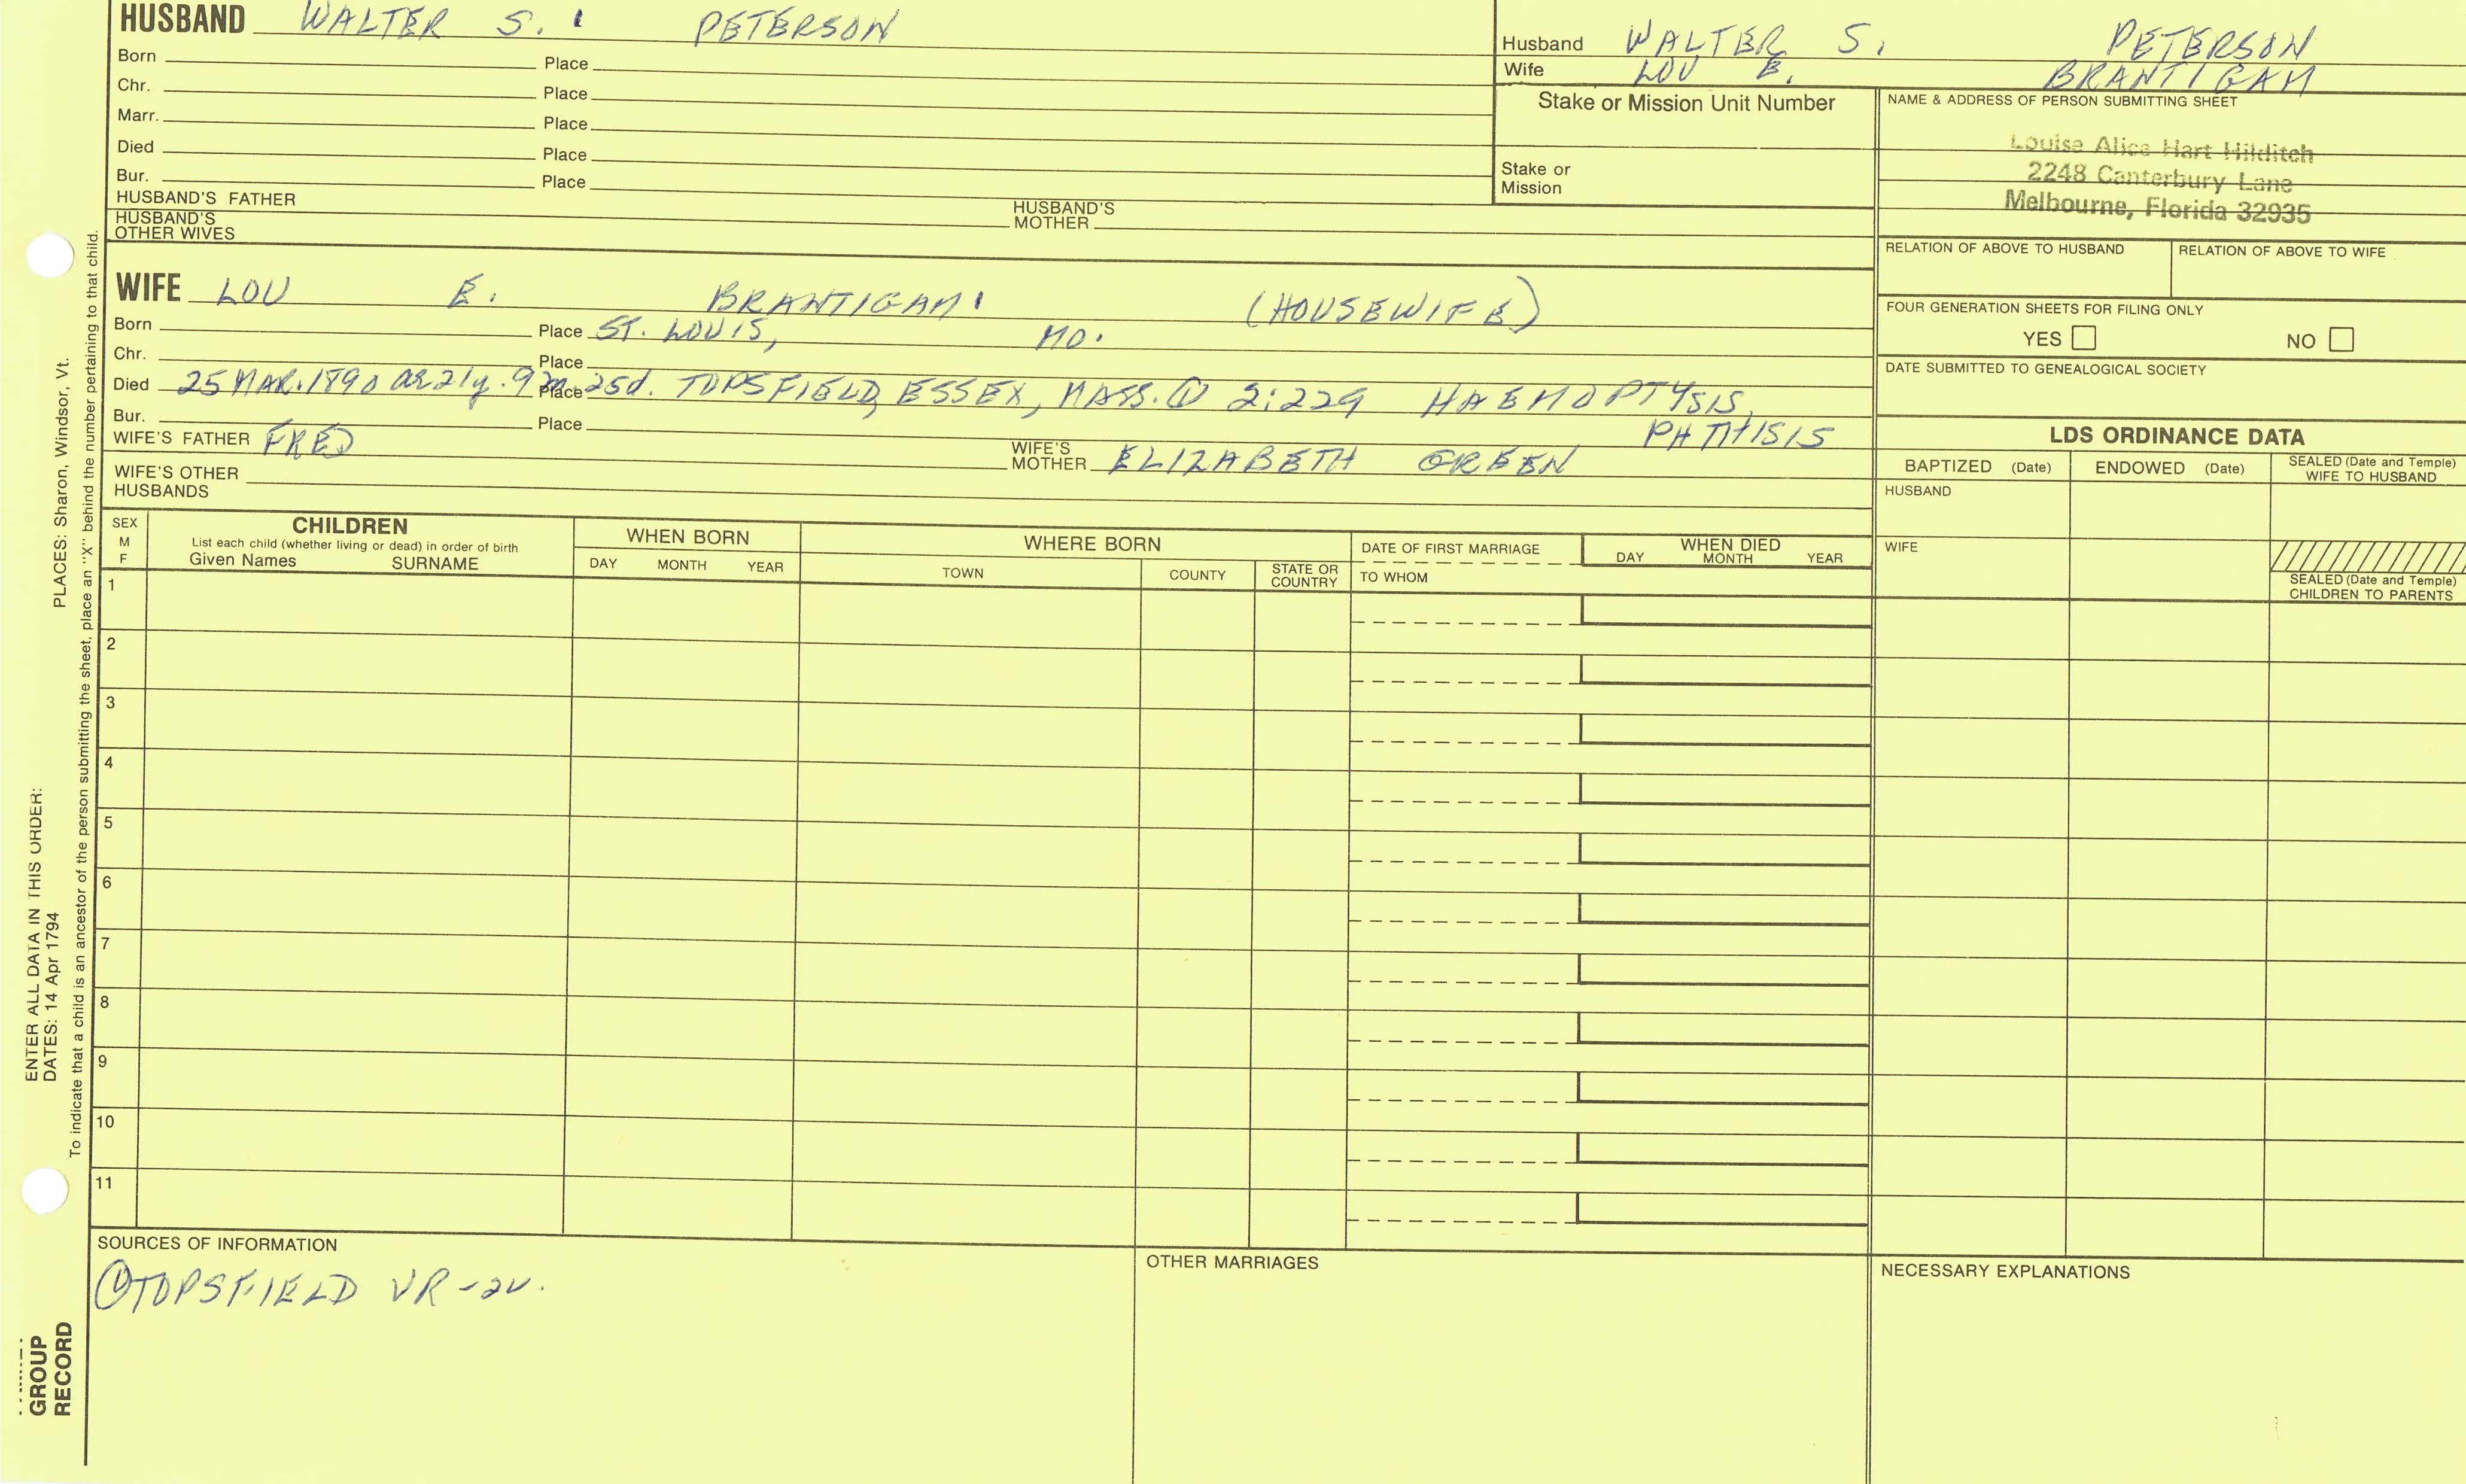 HUSBAND WALTER S. PETERSON
Born Place
Chr. Place
Marr. Place
Died Place
Bur. Place
HUSBAND'S FATHER HUSBAND'S MOTHER
HUSBAND'S OTHER WIVES
Husband WALTER S. PETERSON
Wife LOU E. BRANTIGAM
Stake or Mission Unit Number
Stake or Mission
NAME & ADDRESS OF PERSON SUBMITTING SHEET
Louise Alice Hart Hilditch
2248 Canterbury Lane
Melbourne, Florida 32935
RELATION OF ABOVE TO HUSBAND RELATION OF ABOVE TO WIFE
FOUR GENERATION SHEETS FOR FILING ONLY
YES NO
DATE SUBMITTED TO GENEALOGICAL SOCIETY
WIFE LOU E. BRANTIGAM (HOUSEWIFE)
Born Place ST. LOUIS, MO.
Chr. Place
Died 25 MAR. 1890 ae 21y. 9m. 25d. Place TOPSFIELD, ESSEX, MASS. ① 2:229 HAEMOPTYSIS,
PHTHISIS
Bur. Place
WIFE'S FATHER FRED WIFE'S MOTHER ELIZABETH GREEN
WIFE'S OTHER HUSBANDS
LDS ORDINANCE DATA
BAPTIZED (Date) ENDOWED (Date) SEALED (Date and Temple) WIFE TO HUSBAND
HUSBAND
WIFE
SEALED (Date and Temple) CHILDREN TO PARENTS
SEX M F
CHILDREN
List each child (whether living or dead) in order of birth
Given Names SURNAME
WHEN BORN
DAY MONTH YEAR
WHERE BORN
TOWN COUNTY STATE OR COUNTRY
DATE OF FIRST MARRIAGE
TO WHOM
WHEN DIED
DAY MONTH YEAR
1
2
3
4
5
6
7
8
9
10
11
SOURCES OF INFORMATION
① TOPSFIELD VR-2V.
OTHER MARRIAGES
NECESSARY EXPLANATIONS
ENTER ALL DATA IN THIS ORDER:
DATES: 14 Apr 1794
PLACES: Sharon, Windsor, Vt.
To indicate that a child is an ancestor of the person submitting the sheet, place an "X" behind the number pertaining to that child.
GROUP
RECORD